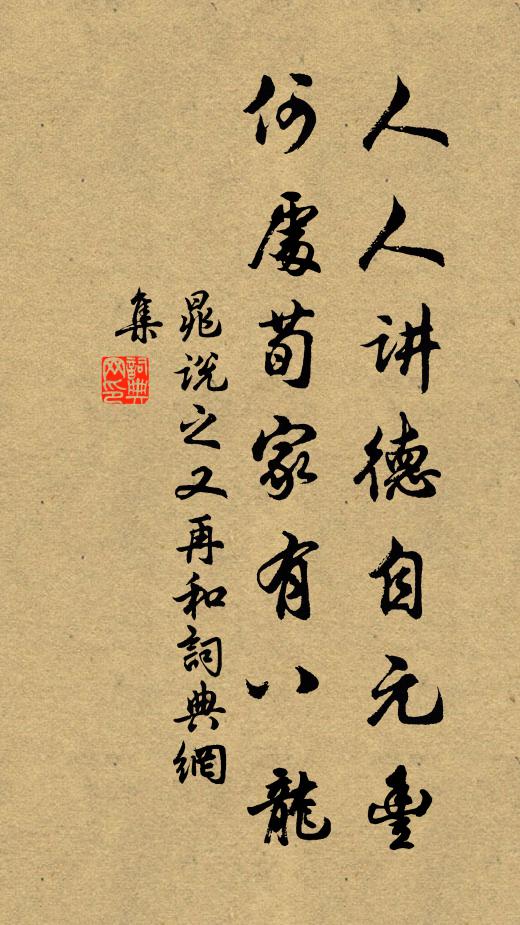 人人讲德自元豐
何處荀家有八龍
晁说之又再和詞典網
集
詞典
网印